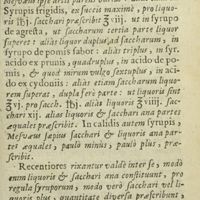 Syrupis frigidis, ex succis maxime, pro liquo-
ris ℔j. sacchari præscribit ʒviij. ut in syrupo
de agresta, ut saccharum tertia parte liquor
superet: aliàs liquor duplus ad saccharum, in
syrupo de pomis sabor: aliàs triplus, in syr.
acido ex prunis, quadruplus, in acido de po-
mis, & quod mirum videri, sextuplus, in aci-
do ex cydoniis: aliàs etiam saccharum liquo-
rem superat, dupla serè parte: ut liquoris sint
ʒvj. pro sacch. ℔j. aliàs liquoris ʒviij. sac-
chari xij. aliàs liquoris & sacchari ana partes
æquales præscribit. In calidis autem syrupis,
Mesvæus sæpius sacchari & liquoris ana par-
tes æquales, paulò minus, paulò plus, præ-
scribit.
Recentiores rixantur valdè inter se, modo
enim liquoris & sacchari ana constituunt, pro
regula syruporum, modo verò sacchari vel li-
quoris plus, quantitate diversa præscribunt,